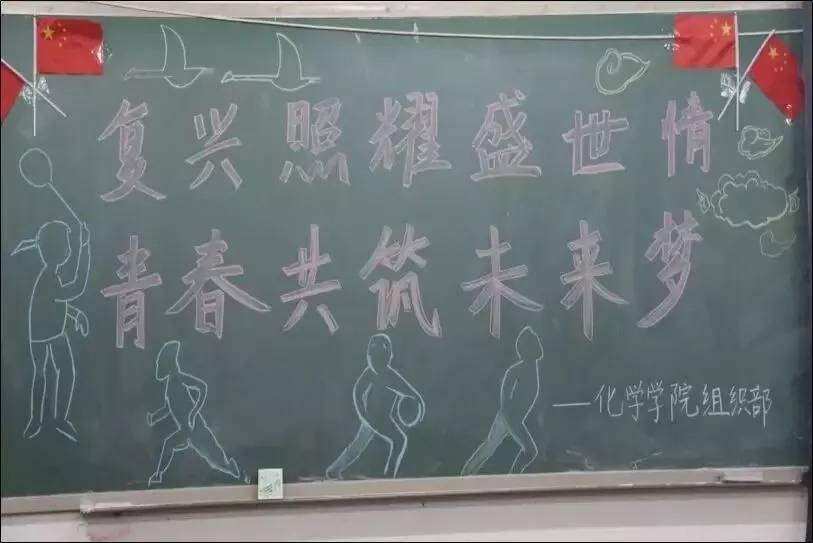 复兴照耀盛世情
青春共筑未来梦
—化学学院组织部